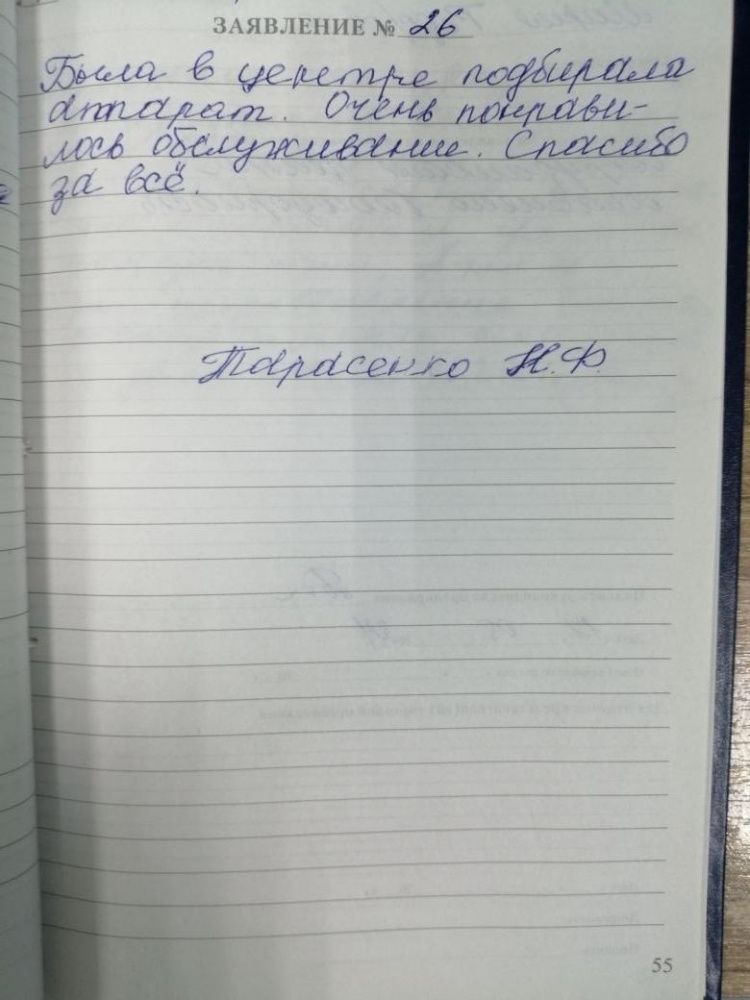 ЗАЯВЛЕНИЕ № 26
Была в ценстре подбирала
аппарат. Очень понрави-
лось обслуживание. Спасибо
за всё.
Тарасенко Н.Ф.
55